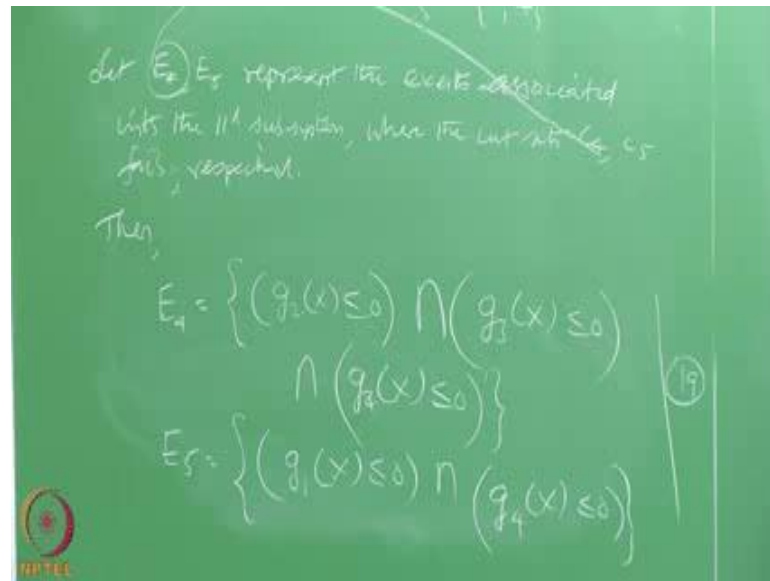 Let E₄, E₅ represent the events associated
with the 11ᵈ subsystem, where the cut sets C₄, C₅
fails, respectively.
Then,
E₄ = {(g₂(x) ≤ 0) ∩ (g₃(x) ≤ 0)
∩ (g₄(x) ≤ 0)}
E₅ = {(g₁(x) ≤ 0) ∩ (g₄(x) ≤ 0)}
19
NPTEL